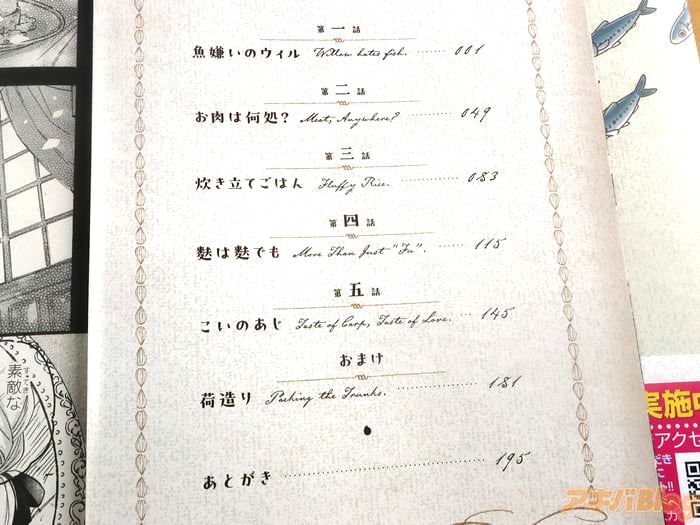 第一話
魚嫌いのウィル Willam hates fish. ········ 001
第二話
お肉は何処? Meat, Anywhere? ················ 049
第三話
炊き立てごはん Fluffy Rice. ··············· 083
第四話
麩は麩でも More Than Just "Fu". ······· 115
第五話
こいのあじ Taste of Carp, Taste of Love. ···· 145
おまけ
荷造り Packing the Trunks. ···················· 181
あとがき ···················· 195
素敵な
すてき
実施中
アクセ
アキバBlog